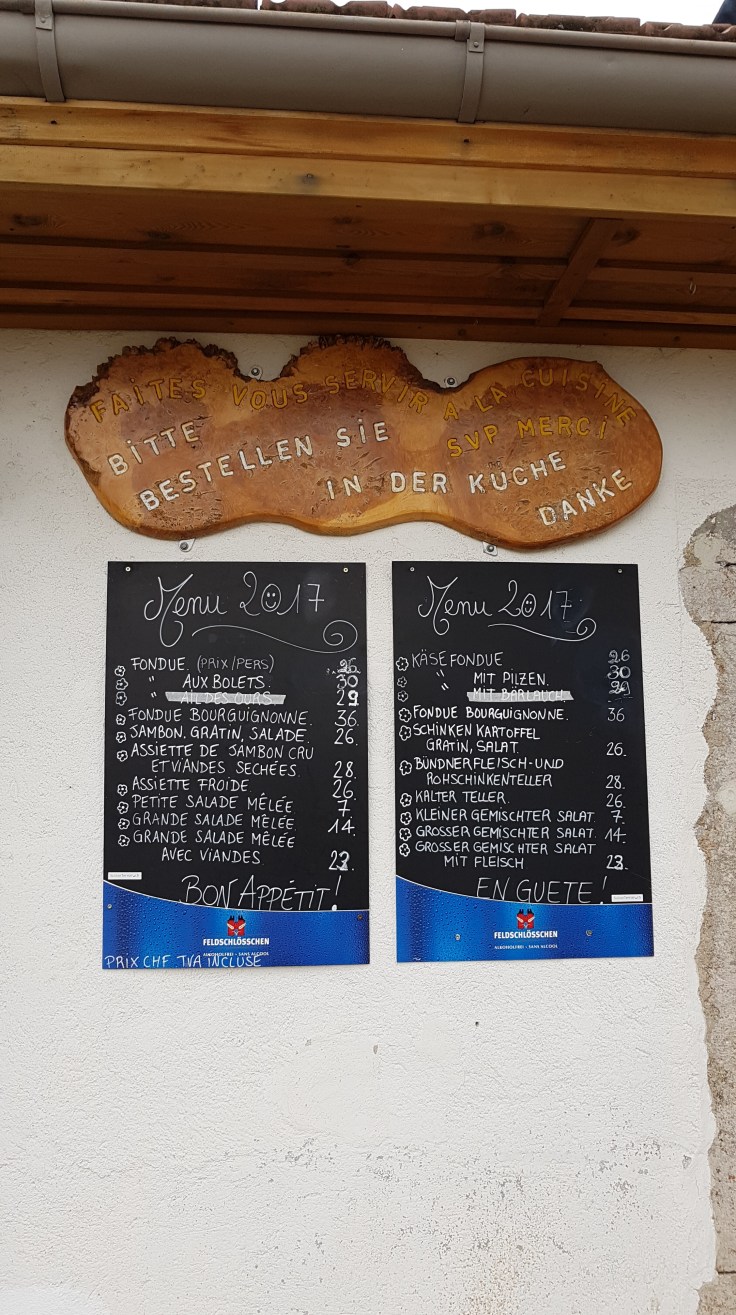 FAITES VOUS SERVIR A LA CUISINE
SVP MERCI
BITTE
BESTELLEN SIE
IN DER KUCHE
DANKE
Menu 2017
FONDUE. (PRIX/PERS) 26
" AUX BOLETS. 30
" AIL DES OURS 29
FONDUE BOURGUIGNONNE. 36.
JAMBON. GRATIN, SALADE. 26.
ASSIETTE DE JAMBON CRU
ET VIANDES SECHÉES. 28.
ASSIETTE FROIDE 26.
PETITE SALADE MÊLÉE 7
GRANDE SALADE MÊLÉE. 14.
GRANDE SALADE MÊLÉE
AVEC VIANDES 23.
BON APPÉTIT!
FELDSCHLÖSSCHEN
ALKOHOLFREI - SANS ALCOOL
PRIX CHF TVA INCLUSE
Menu 2017
KÄSEFONDUE 26
" MIT PILZEN. 30
" MIT BÄRLAUCH 29
FONDUE BOURGUIGNONNE. 36
SCHINKEN KARTOFFEL
GRATIN, SALAT. 26.
BÜNDNERFLEISCH-UND
ROHSCHINKENTELLER 28.
KALTER TELLER. 26.
KLEINER GEMISCHTER SALAT. 7.
GROSSER GEMISCHTER SALAT. 14.
GROSSER GEMISCHTER SALAT
MIT FLEISCH 23.
EN GUETE!
FELDSCHLÖSSCHEN
ALKOHOLFREI - SANS ALCOOL